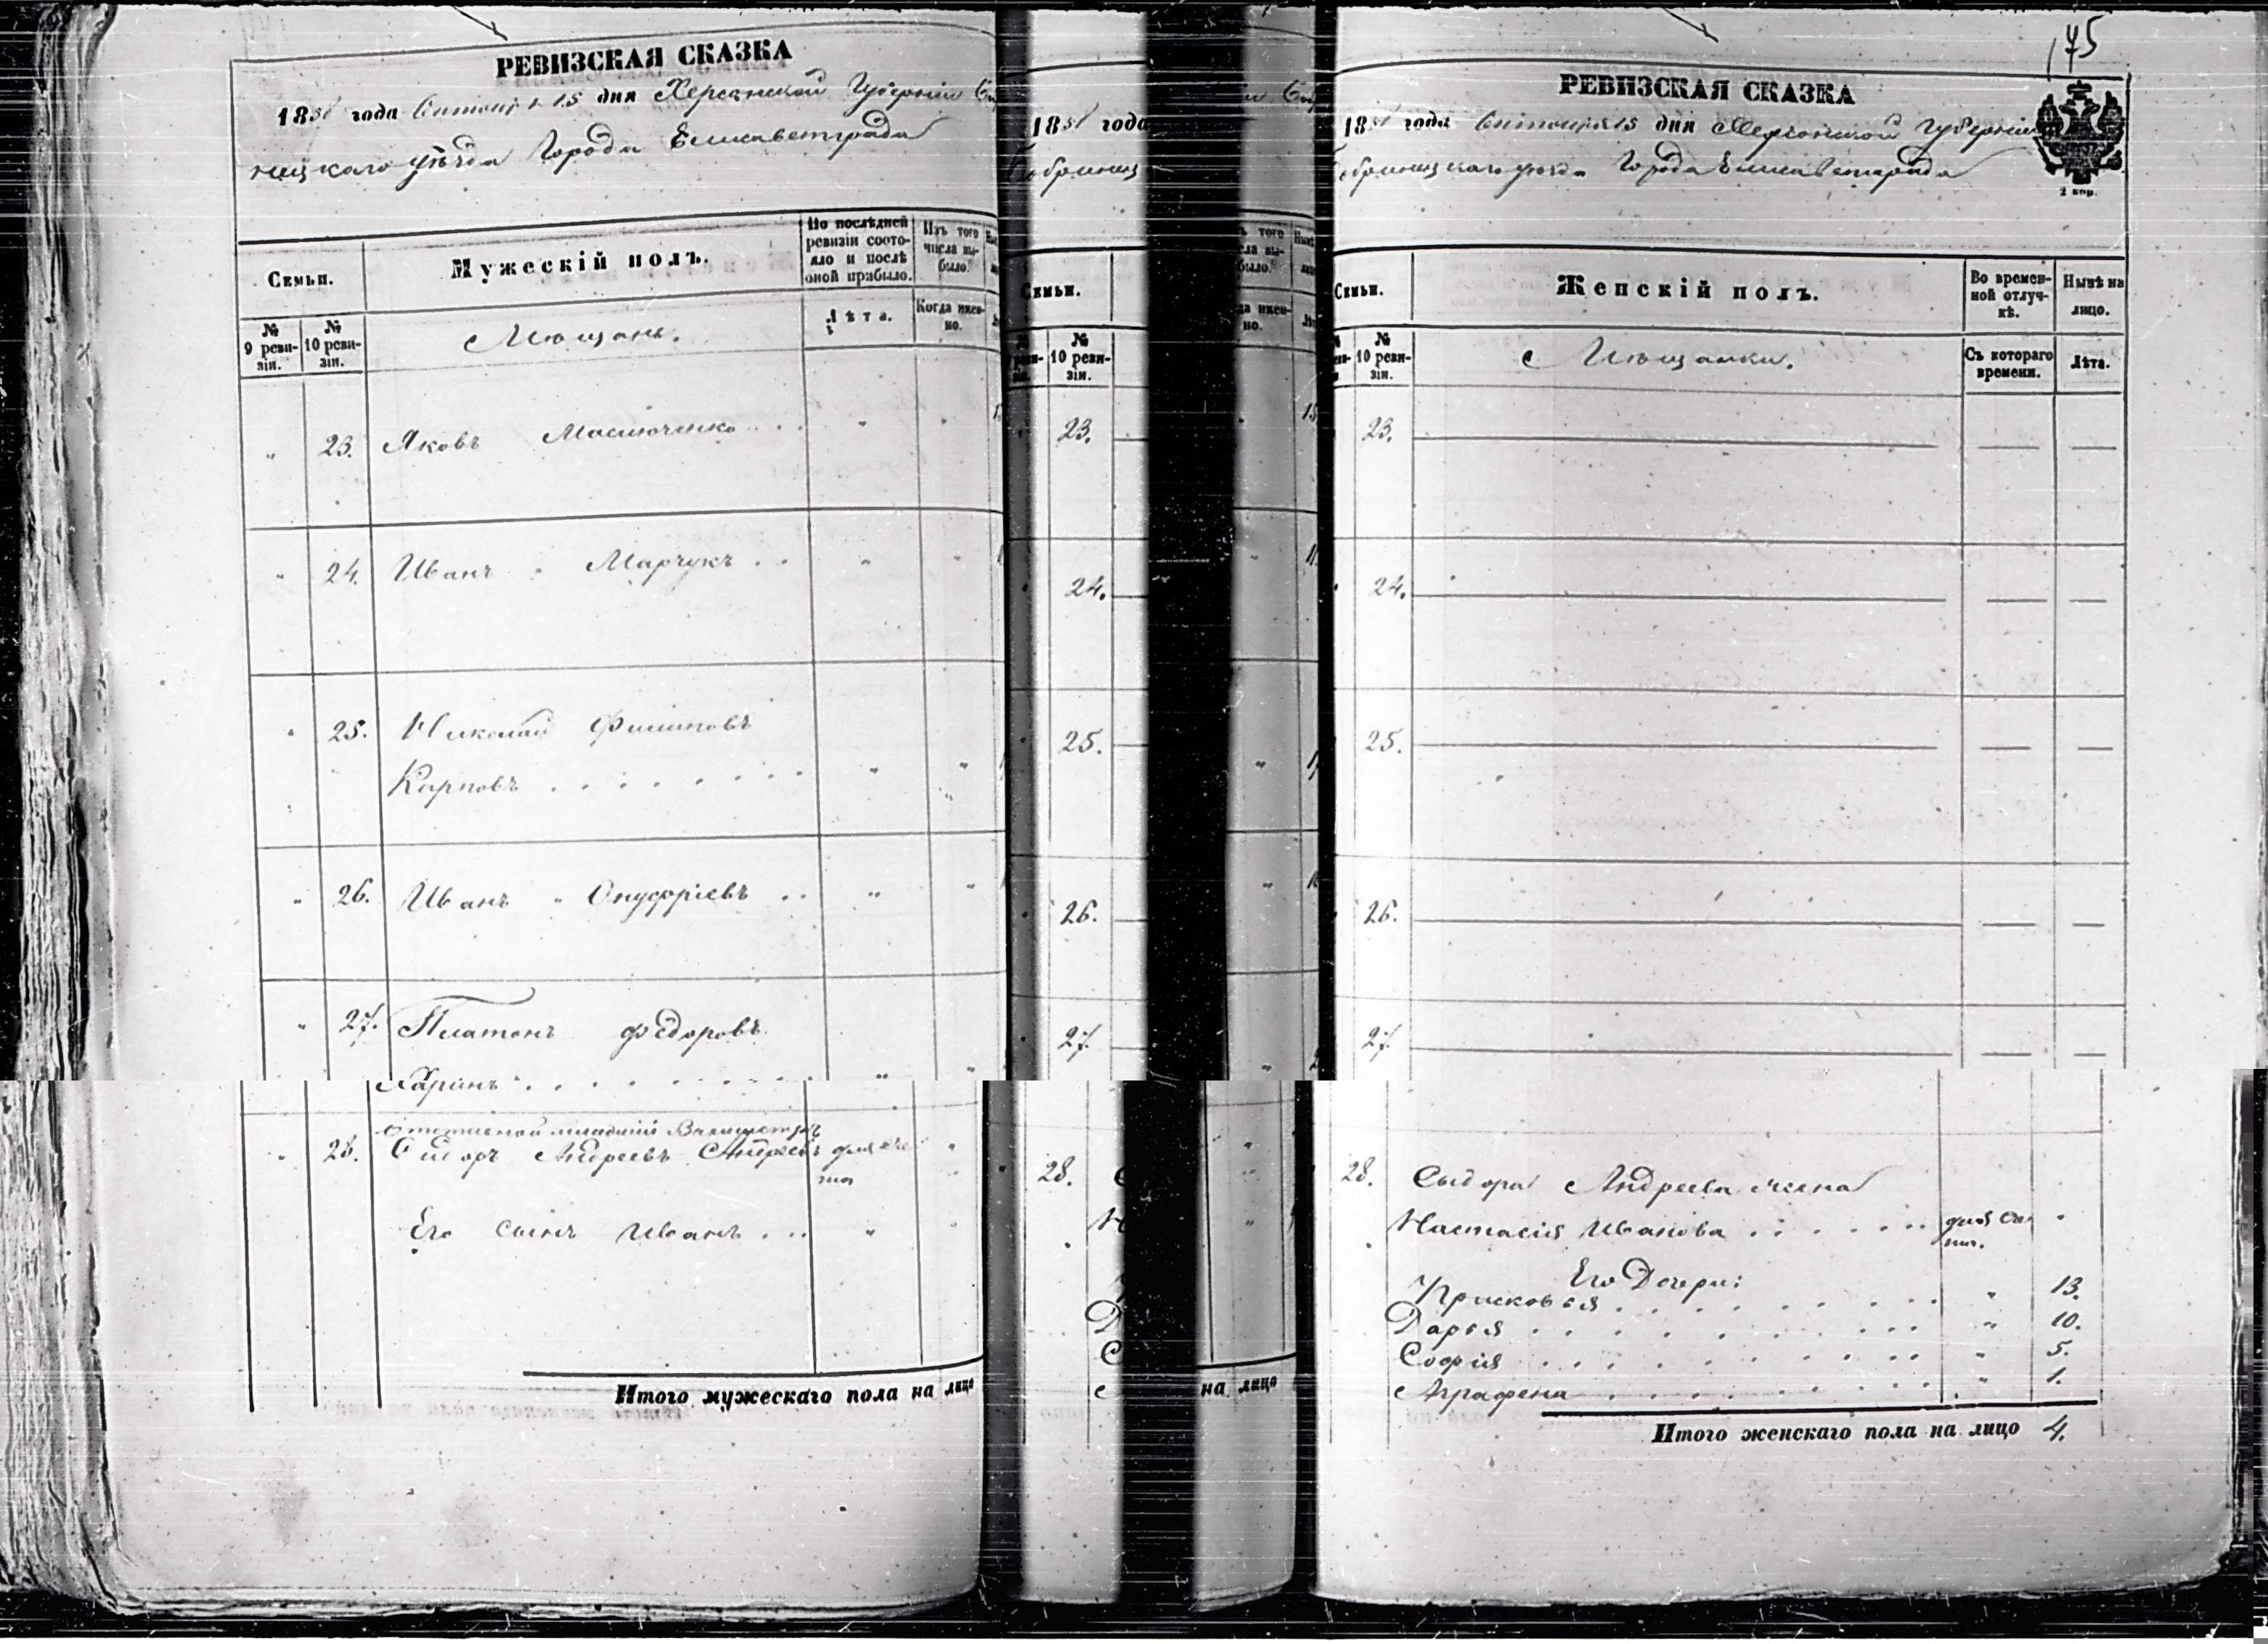 175
РЕВИЗСКАЯ СКАЗКА
185 года 15 дня Херсонской Губерніи
ницкаго уѣзда Города Елисаветграда
Семьи.
Мужескій полъ.
По послѣдней ревизіи состояло и послѣ оной прибыло.
Изъ того числа выбыло.
№ 9 ревизіи.
№ 10 ревизіи.
Мѣщане.
Лѣта.
Когда именно.
„ 23. Яковъ . . . „ „
„ 24. Иванъ „ Марчукъ . . „ „
„ 25. Николай Филиповъ
Карповъ . . . . . . . . „ „
„ 26. Иванъ „ Онуфріевъ . . „ „
„ 27. Платонъ Федоровъ
Харинъ . . . . . . . „ „
Отставной младшій
„ 28. Сидоръ Андреевъ Андреевъ для „
Его сынъ Иванъ . . . „ „
Итого мужескаго пола на лицо
185 года
Семьи.
10 ревизіи.
23.
24.
25.
26.
27.
28.
на лицо
РЕВИЗСКАЯ СКАЗКА
185 года 15 дня Херсонской Губерніи
Бобринецкаго уѣзда Города Елисаветграда
2 коп.
Семьи.
Женскій полъ.
Во временной отлучкѣ.
Нынѣ на лицо.
№ 10 ревизіи.
Мѣщанки.
Съ котораго времени.
Лѣта.
23. — — —
24. — — —
25. — — —
26. — — —
27. — — —
28. Сыдора Андреева жена
Настасія Иванова . . . . . . для „
Его Дочери:
Присковья . . . . . . . „ 13.
Дарья . . . . . . . . „ 10.
Софія . . . . . . . . „ 5.
Аграфена . . . . . . . „ 1.
Итого женскаго пола на лицо 4.